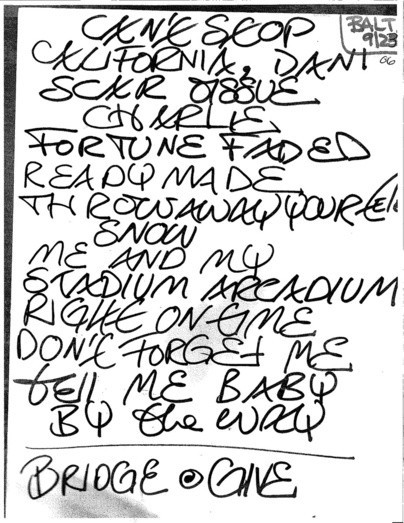 CAN'T STOP
BALT
9/23
06
CALIFORNIA, DANI
SCAR TISSUE
CHARLIE
FORTUNE FADED
READYMADE
THROWAWAYYOURTEL
SNOW
ME AND MY
STADIUM ARCADIUM
RIGHT ON TIME
DON'T FORGET ME
TELL ME BABY
BY the WAY
BRIDGE GIVE